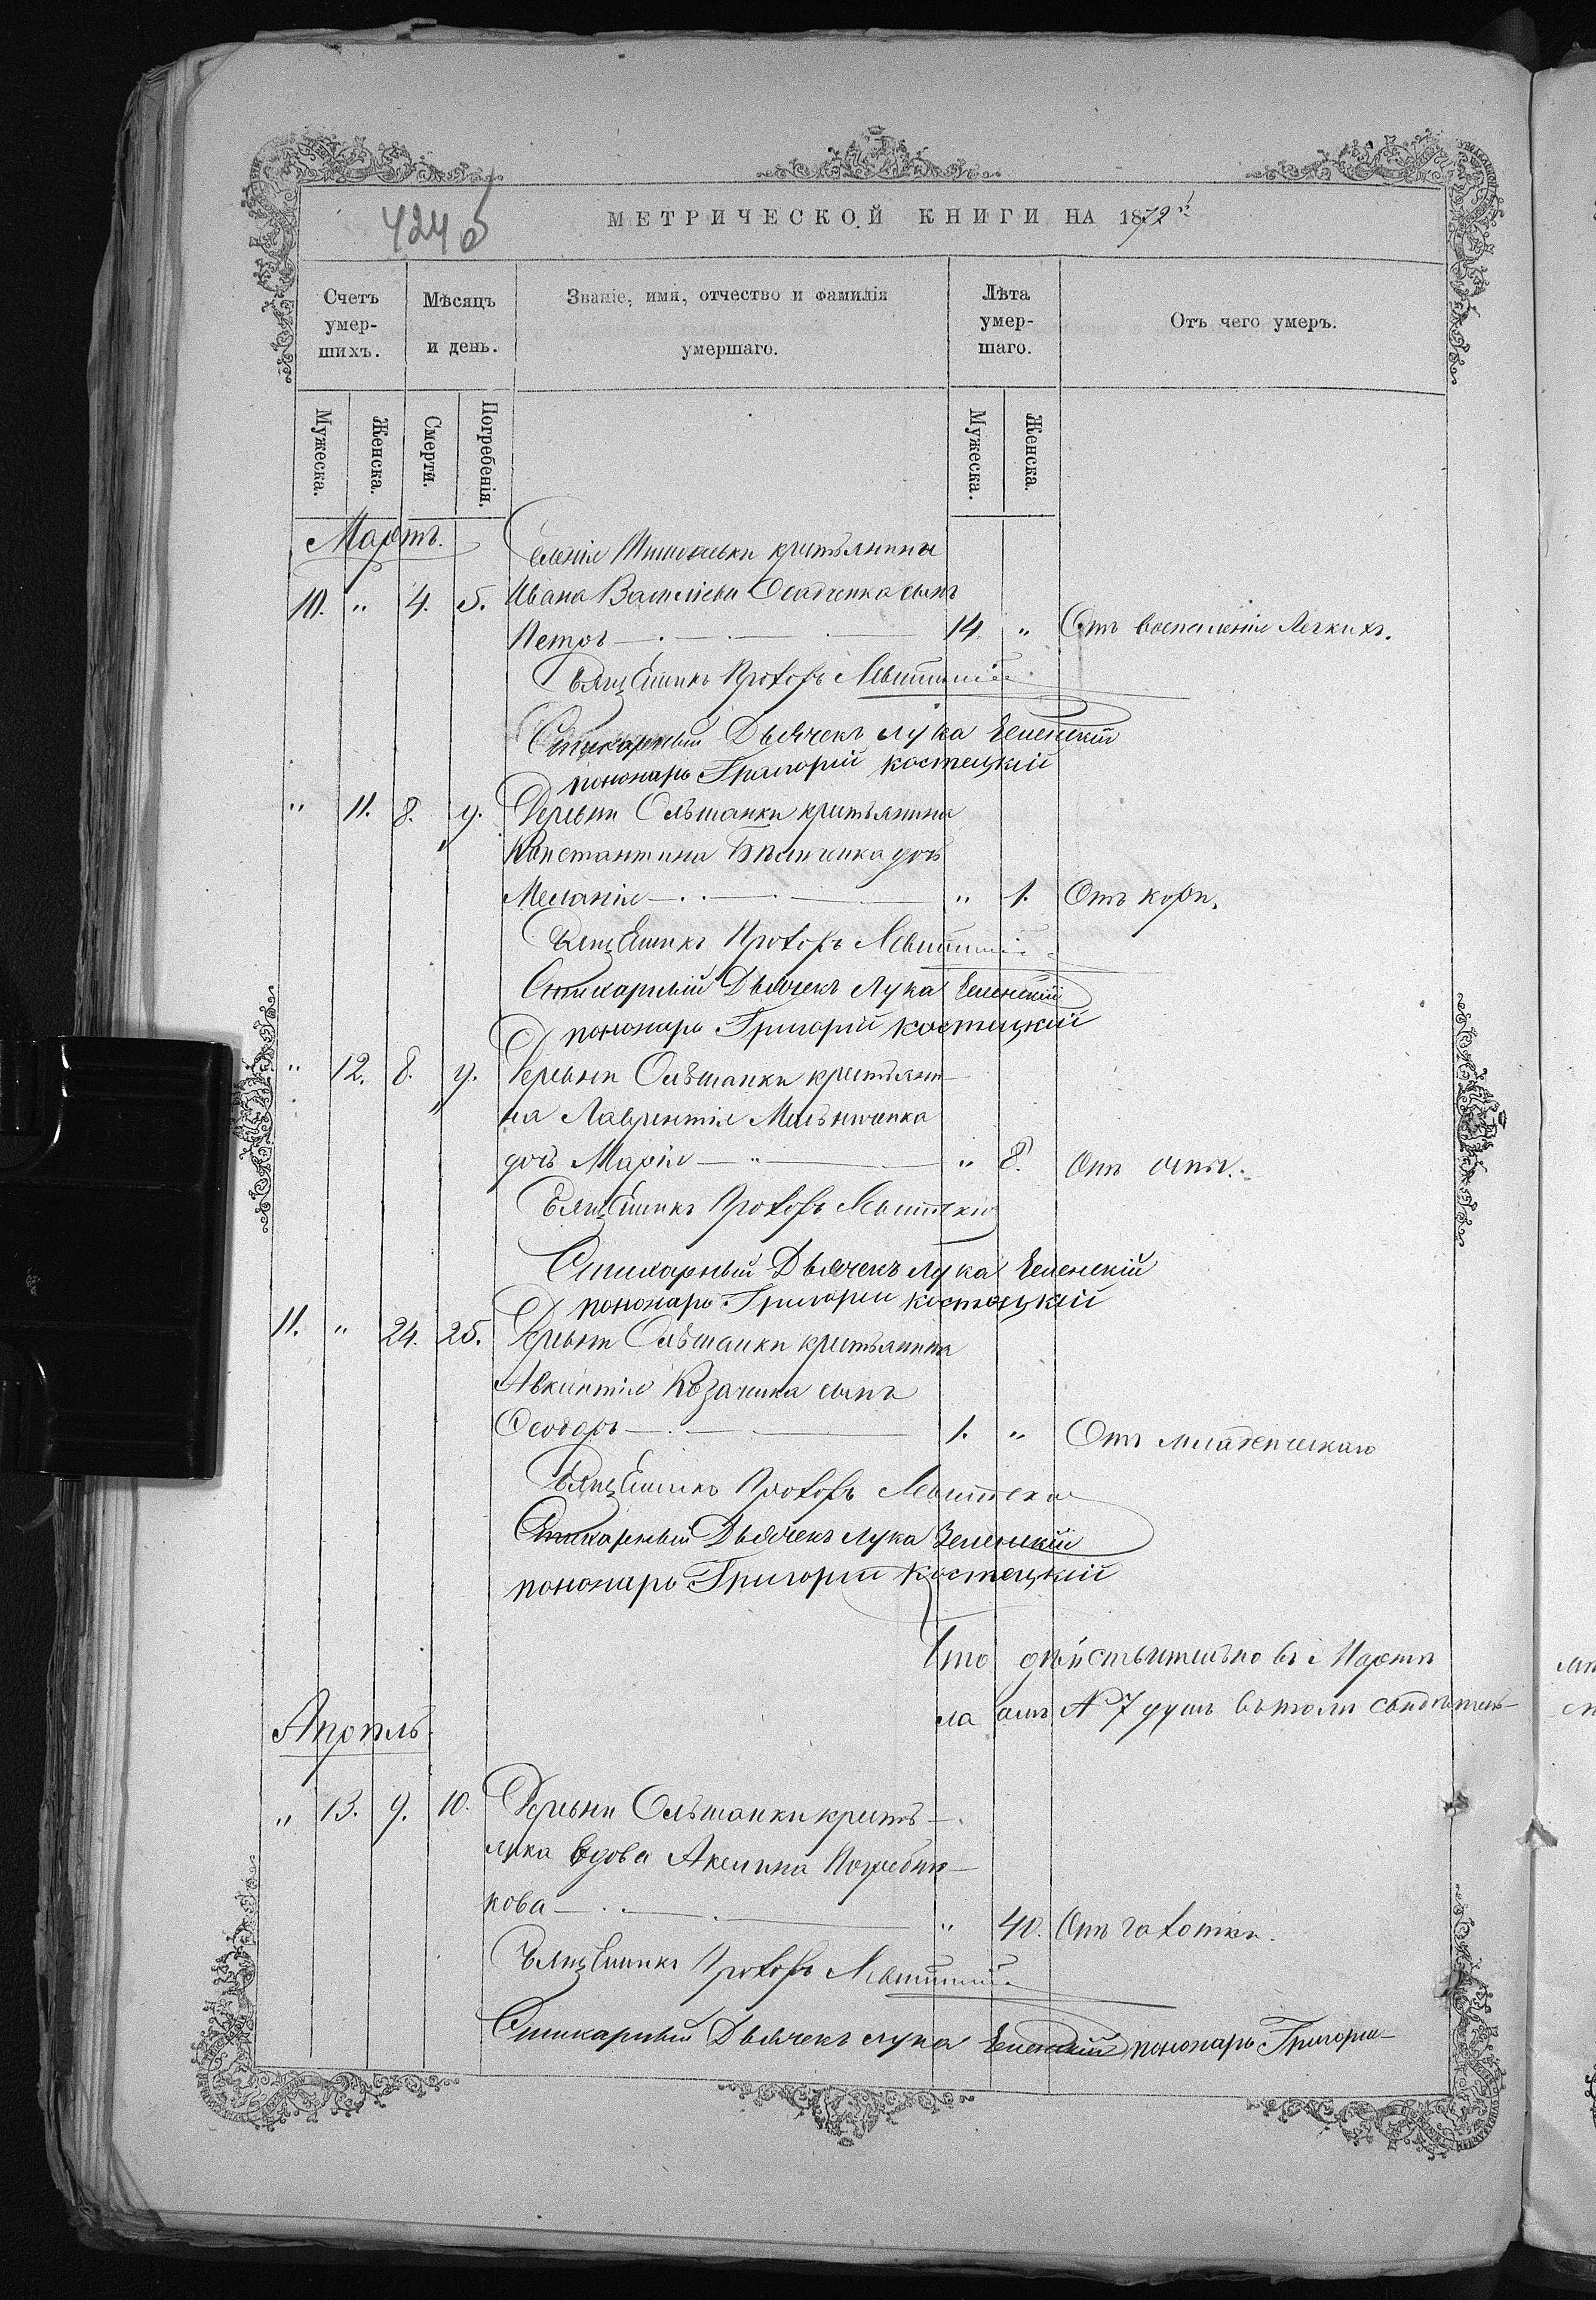 424 об
МЕТРИЧЕСКОЙ КНИГИ НА 1872й
Счетъ умер-шихъ.
Мѣсяцъ и день.
Званіе, имя, отчество и фамилія умершаго.
Лѣта умер-шаго.
Отъ чего умеръ.
Мужеска.
Женска.
Смерти.
Погребенія.
Мужеска.
Женска.
Мартъ.
Селенія крестьянина
10. " 4. 5. Ивана Василіева Осадченка сынъ
Петръ 14 " Отъ воспаленія Легкихъ.
Священникъ Прохоръ Левитскій
Стихарный Дьячекъ Лука Зеленскій
пономарь Григорій Костецкій
" 11. 8. 9. Деревни Ольшанки крестьянина
Константина дочь
Меланія " 1. Отъ кори.
Священникъ Прохоръ Левитскій
Стихарный Дьячекъ Лука Зеленскій
пономарь Григорій Костецкій
" 12. 8. 9. Деревни Ольшанки крестьяни-
на Лаврентія Мельниченка
дочь Марія " 8. Отъ оспы.
Священникъ Прохоръ Левитскій
Стихарный Дьячекъ Лука Зеленскій
пономарь Григорій Костецкій
11. " 24. 25. Деревни Ольшанки крестьянина
Авксентія Козаченка сынъ
Ѳеодоръ 1. " Отъ младенческаго
Священникъ Прохоръ Левитскій
Стихарный Дьячекъ Лука Зеленскій
пономарь Григорій Костецкій
Что дѣйствительно въ Мартѣ
№ 7 душъ въ томъ свидѣтель-
Апрѣль.
" 13. 9. 10. Деревни Ольшанки кресть-
янка вдова Акилина Погребня-
кова " 40. Отъ чахотки.
Священникъ Прохоръ Левитскій
Стихарный Дьячекъ Лука Зеленскій пономарь Григорій